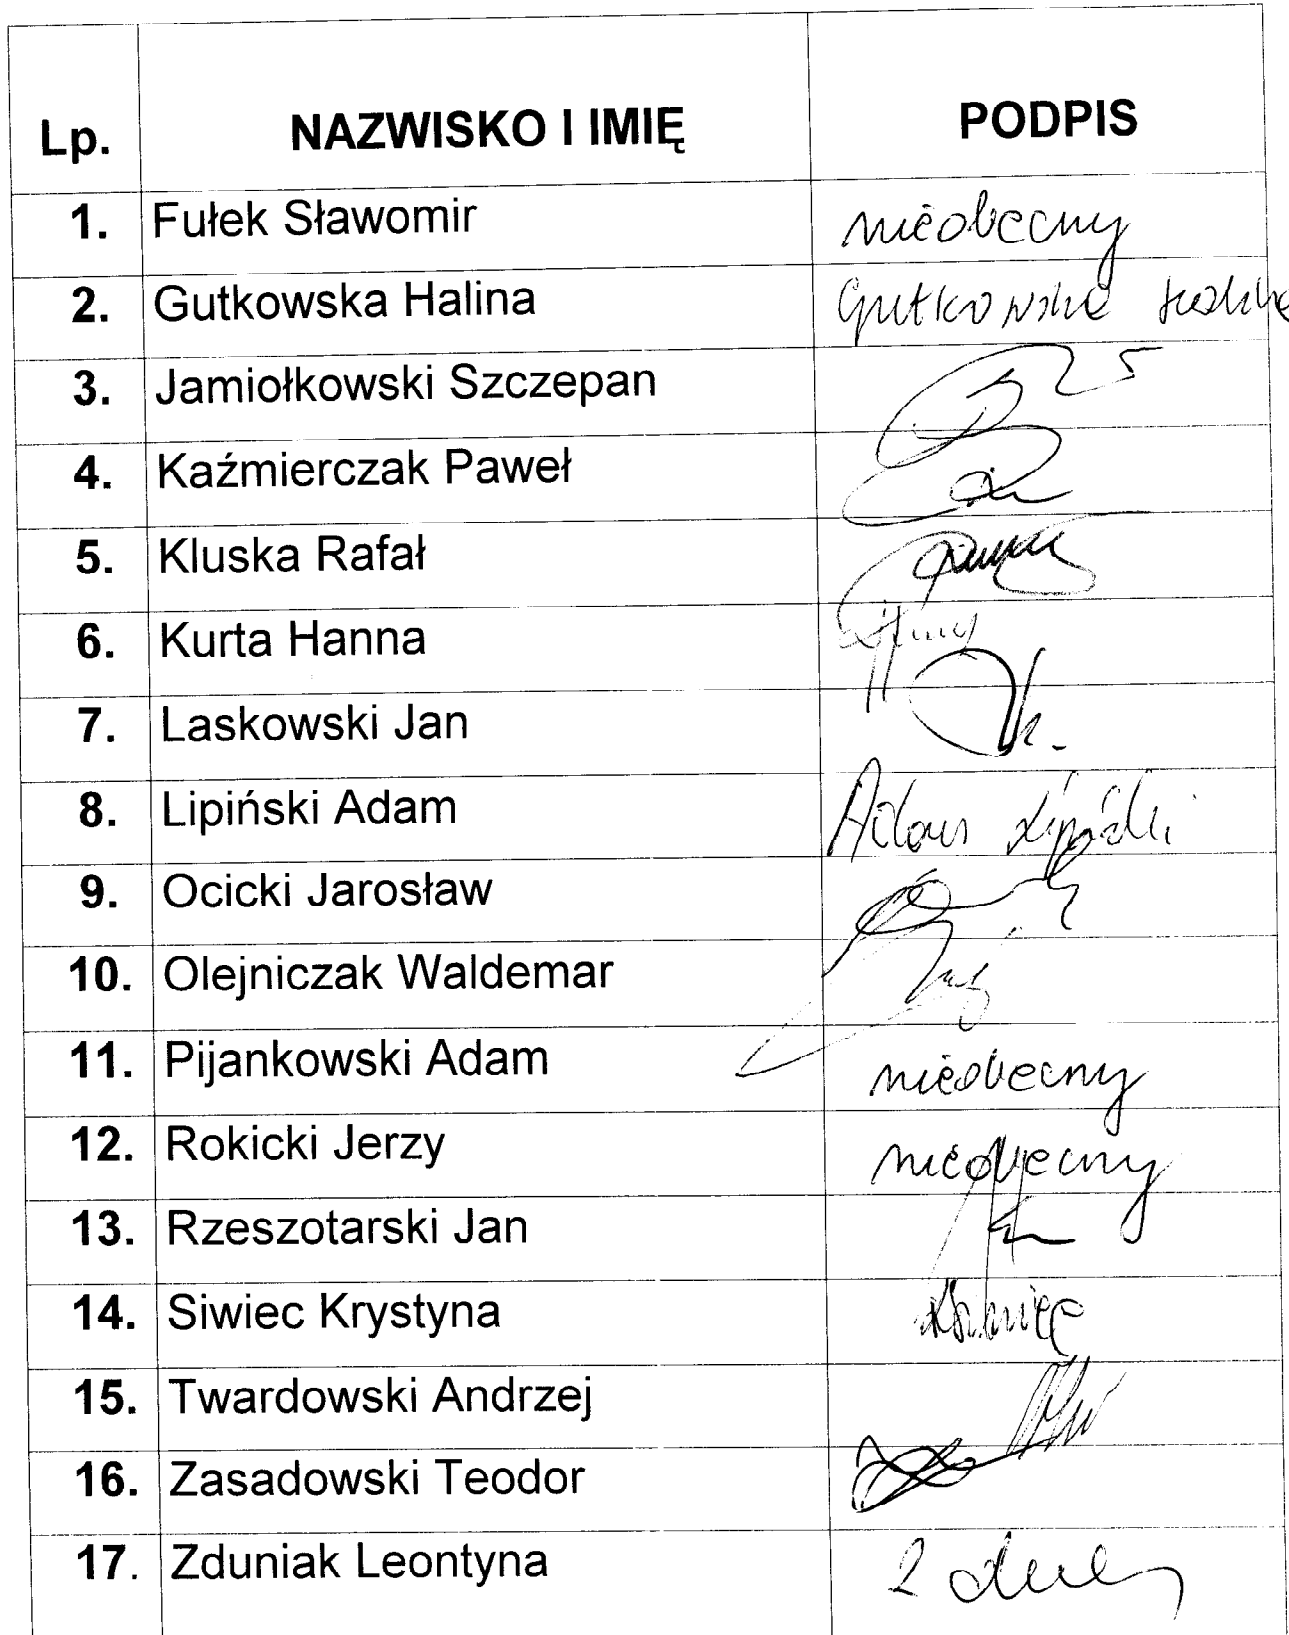 Lp. NAZWISKO I IMIĘ PODPIS
1. Fułek Sławomir nieobecny
2. Gutkowska Halina Gutkowska Halina
3. Jamiołkowski Szczepan
4. Kaźmierczak Paweł
5. Kluska Rafał
6. Kurta Hanna
7. Laskowski Jan
8. Lipiński Adam Adam Lipiński
9. Ocicki Jarosław
10. Olejniczak Waldemar
11. Pijankowski Adam nieobecny
12. Rokicki Jerzy nieobecny
13. Rzeszotarski Jan
14. Siwiec Krystyna
15. Twardowski Andrzej
16. Zasadowski Teodor
17. Zduniak Leontyna